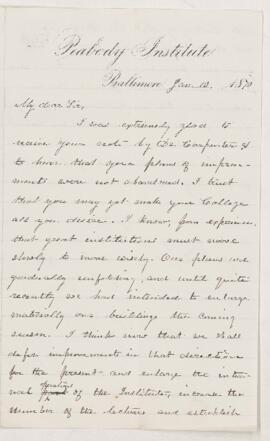 Peabody Institute
Baltimore Jan. 12. 1870
My dear Sir,
I was extremely glad to
receive your note by Dr. Carpenter &
to learn that your plans of improve-
ments were not abandoned. I trust
that you may yet make your College
all you desire. I know, from experience,
that great institutions must move
slowly to move wisely. Our plans are
gradually unfolding, and until quite
recently we had intended to enlarge
materially our buildings the coming
season. I think now that we shall
defer improvements in that direction
for the present and enlarge the inter-
nal of the Institute, increase the
number of the lectures and establish